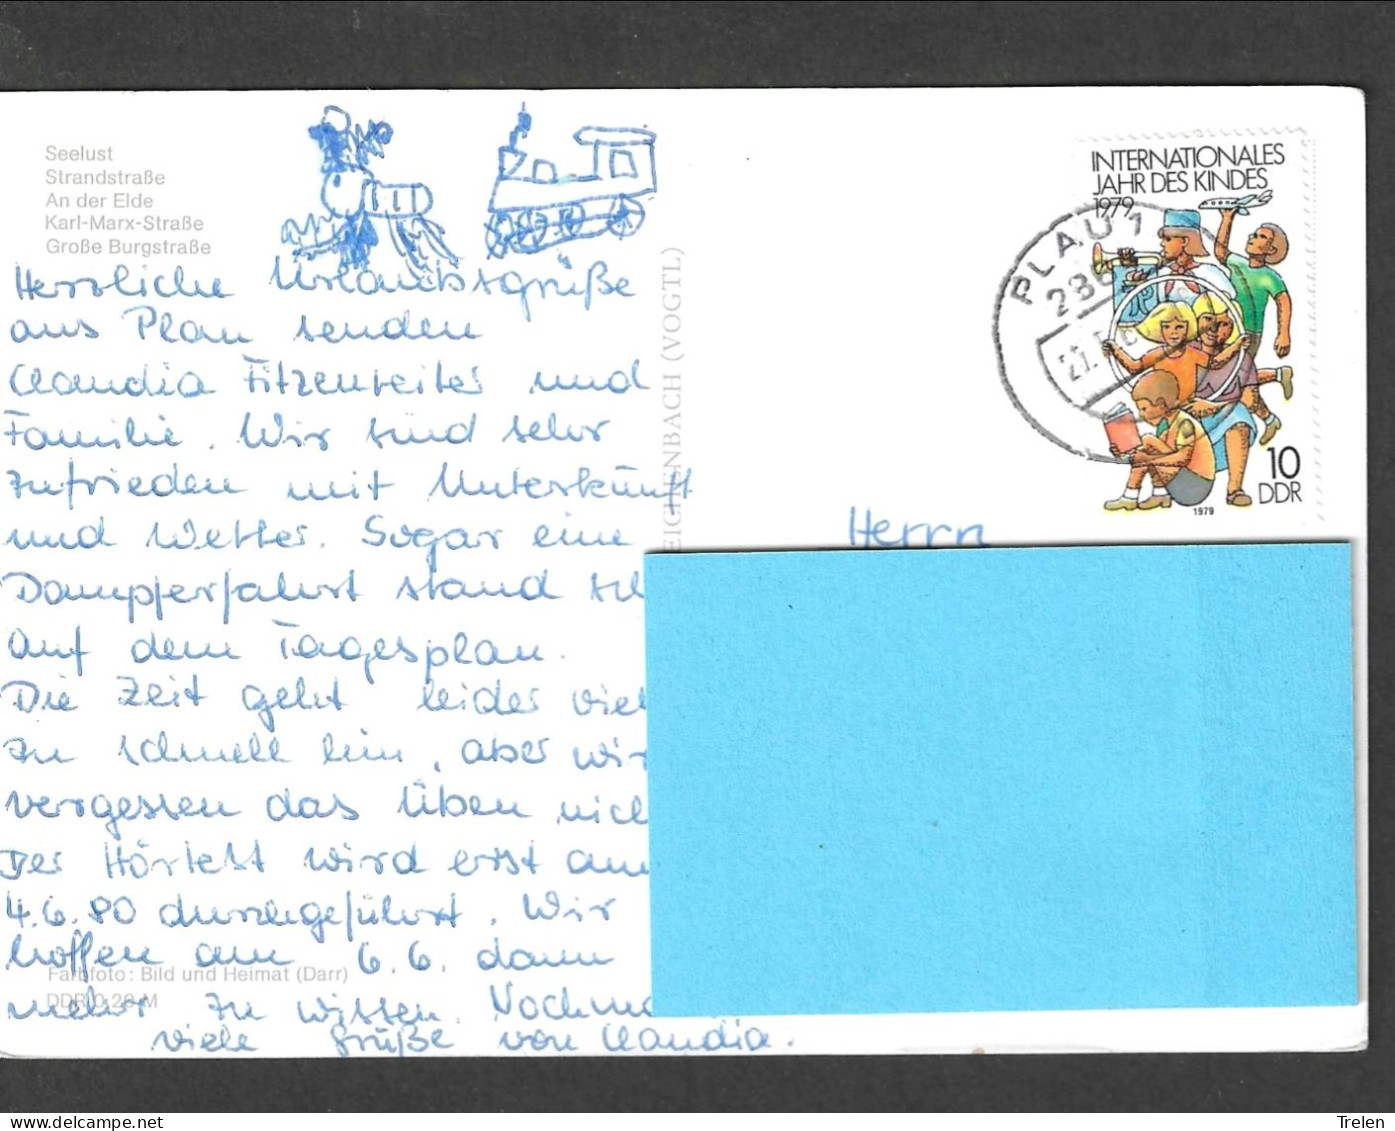 Seelust
Strandstraße
An der Elde
Karl-Marx-Straße
Große Burgstraße
Herzliche Urlaubsgrüße
aus Plau senden
Claudia Fitzenreiter und
Familie. Wir sind sehr
zufrieden mit Unterkunft
und Wetter. Sogar eine
Dampferfahrt stand sch
auf dem Tagesplan.
Die Zeit geht leider viel
zu schnell hin, aber wir
vergessen das Üben nich
Der Hörtest wird erst am
4.6.80 durchgeführt. Wir
hoffen am 6.6. dann
Farbfoto: Bild und Heimat (Darr)
DDR 0,20 M
mehr zu wissen. Nochma
viele Grüße von Claudia.
EICHENBACH (VOGTL)
INTERNATIONALES
JAHR DES KINDES
1979
10
DDR
1979
PLAU 1
Herrn
Trelen